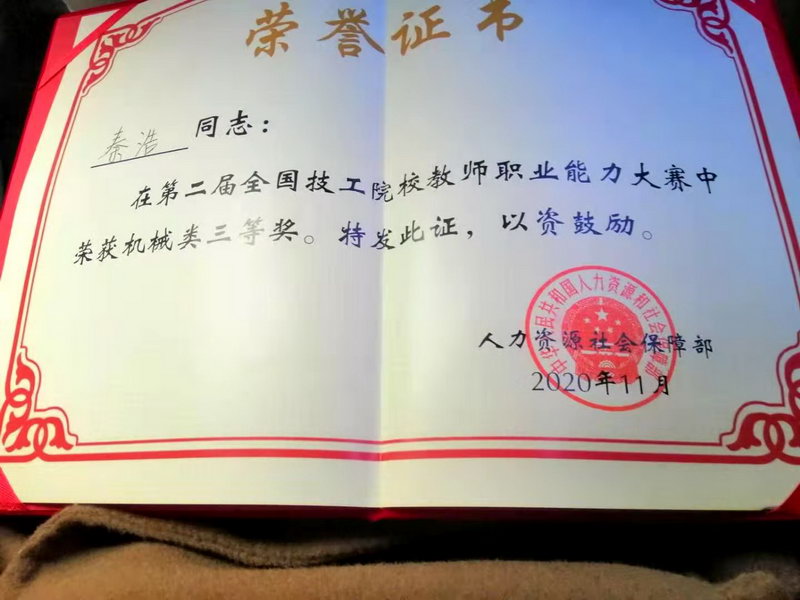 荣誉证书
秦浩 同志：
在第二届全国技工院校教师职业能力大赛中
荣获机械类三等奖。特发此证，以资鼓励。
中华人民共和国人力资源和社会保障部
人力资源社会保障部
2020年11月